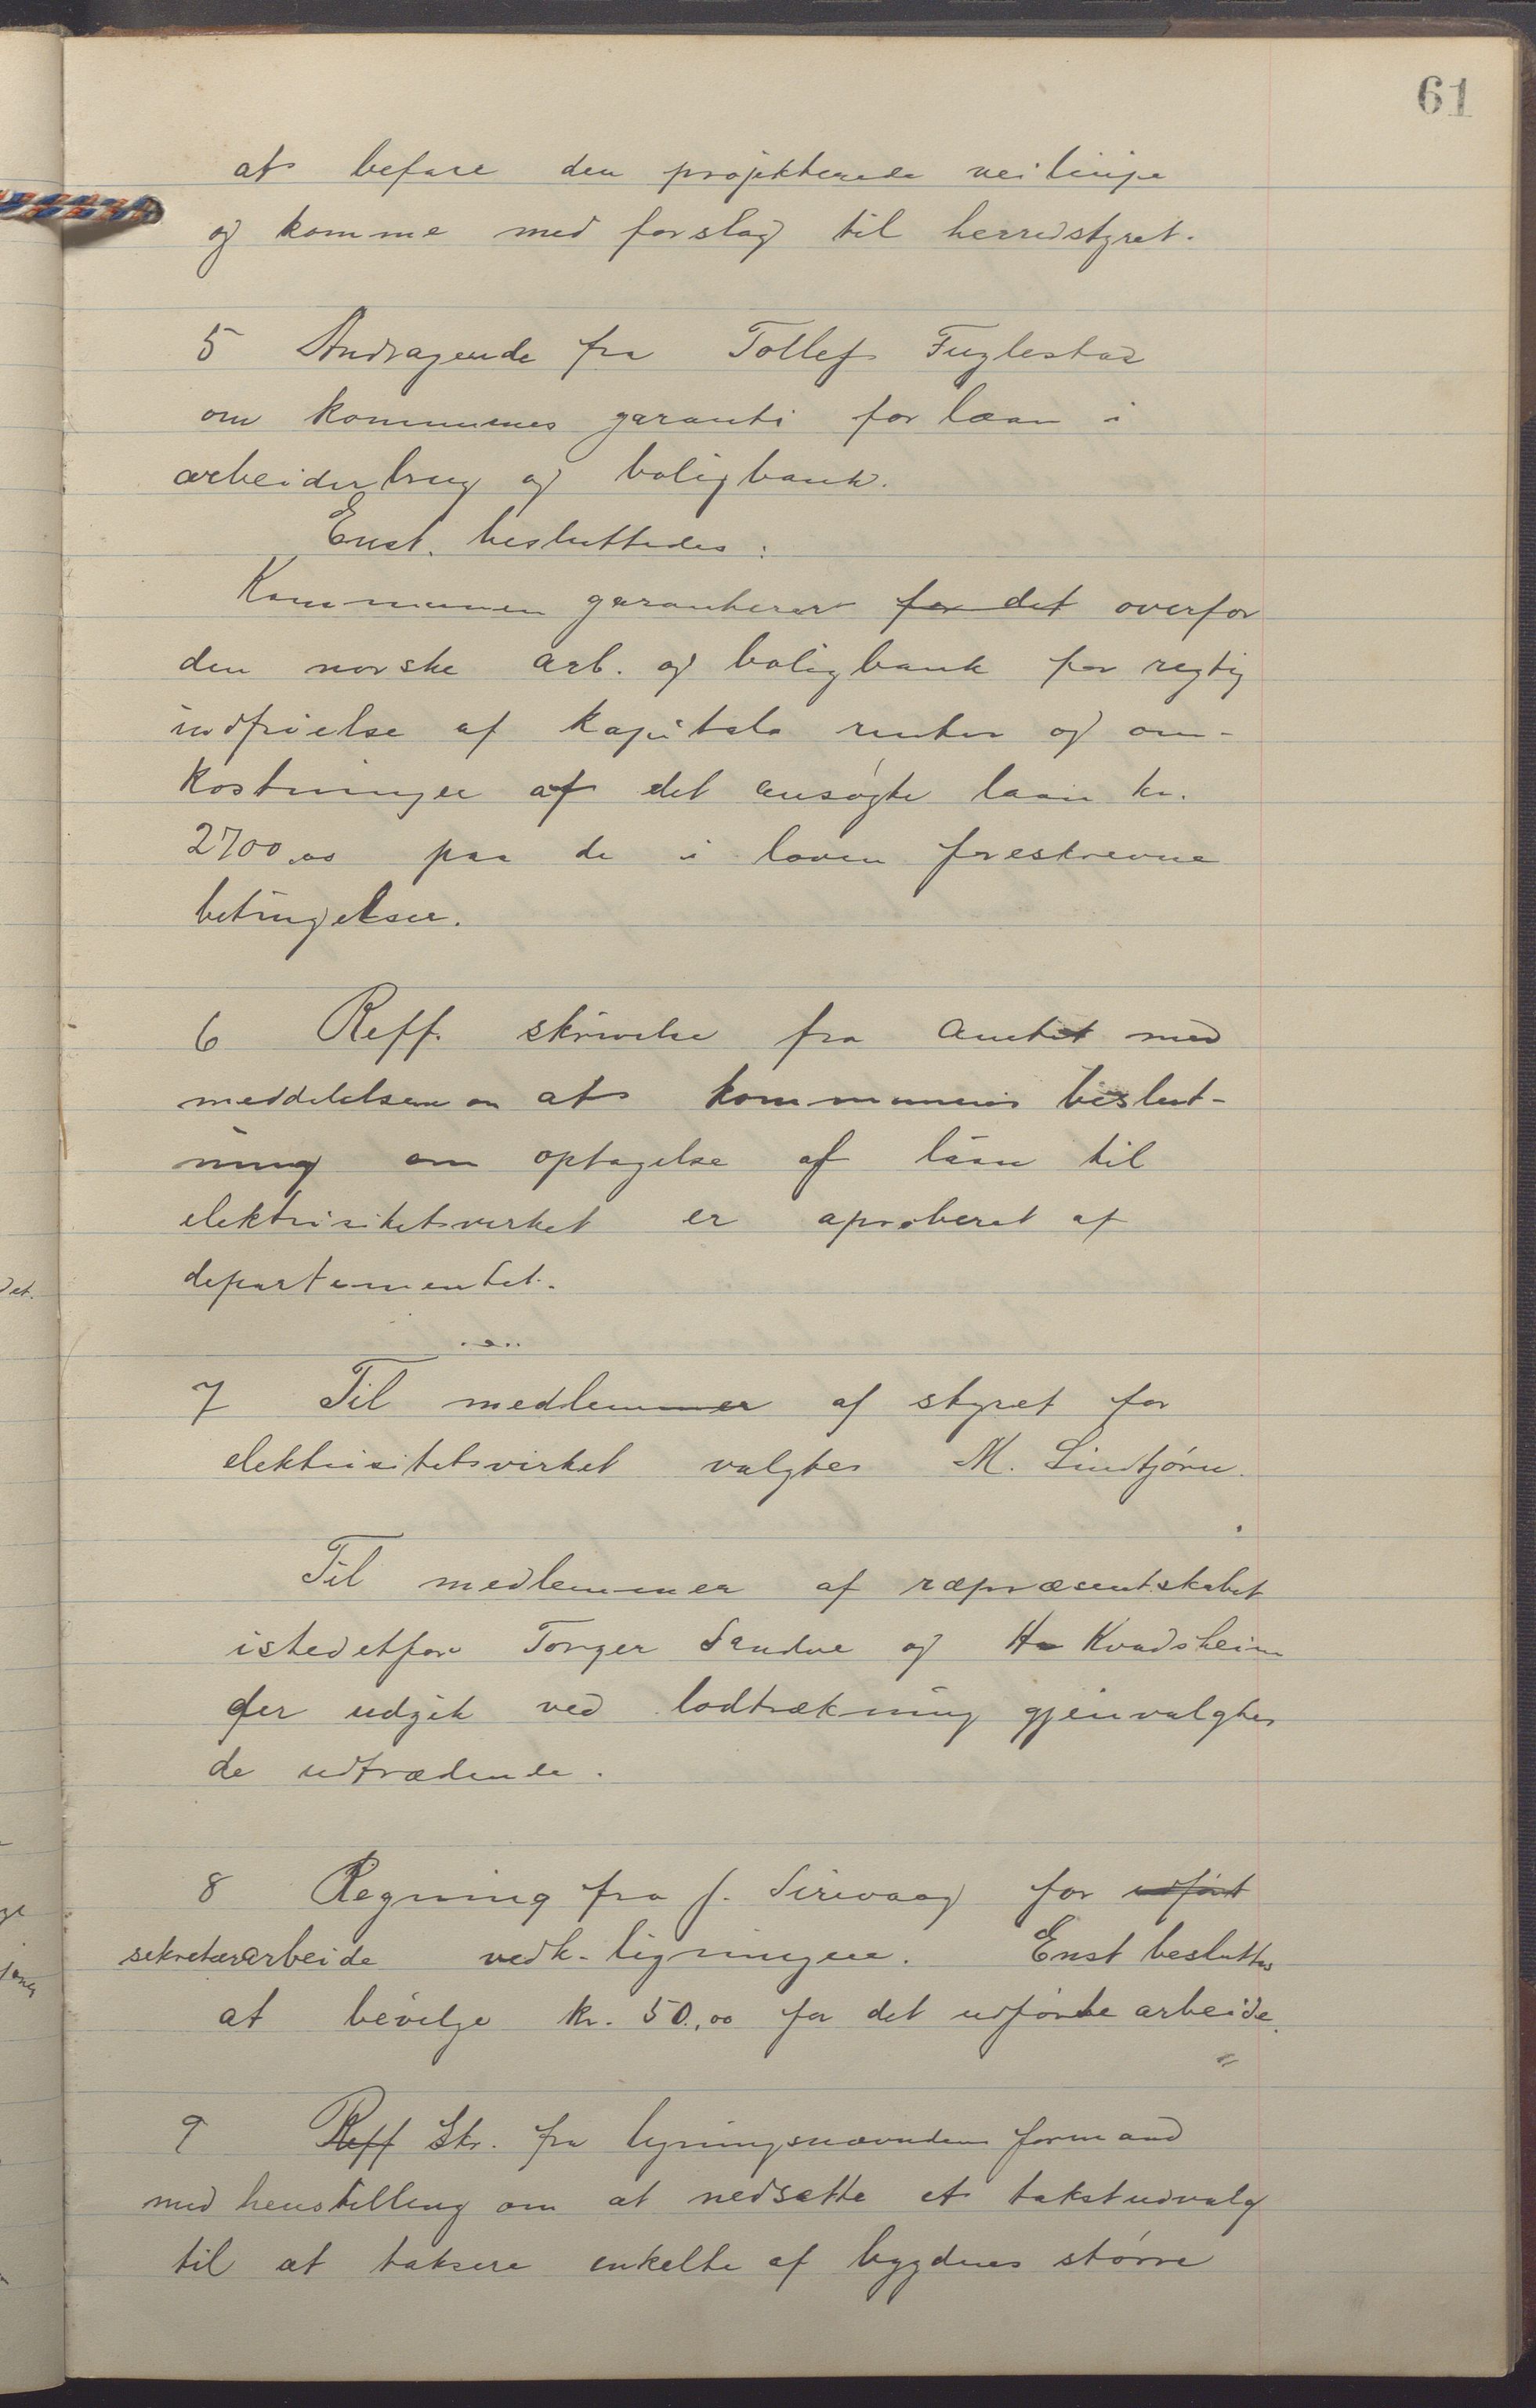 61
at befare den projekterede veilinje
og komme med forslag til herredstyret.
5 Andragende fra Tollef Fuglestad
om kommunes garanti for laan i
arbeiderbrug og boligbank.
Enst. besluttedes:
Kommunen garanterer for det overfor
den norske arb. og boligbank for rigtig
indfrielse af kapitals renter og om-
kostninger af det ansøgte laan kr.
2700.00 paa de i loven foreskrevne
betingelser.
6 Reff. skrivelse fra amtet med
meddelelsen om at kommunens beslut-
ning om optagelse af laan til
elektrisitetsverket er aproberet af
departementet.
7 Til medlemmer af styret for
elektrisitetsvirket valgtes M. Lindtjørn.
Til medlemmer af repræsentskabet
istedetfor Torger Sandve og H Kvadsheim
der udgik ved lodtrækning gjenvalgtes
de udtrædende.
8 Regning fra J. Sirevaag for udført
sekretærarbeide vedk. ligningen. Enst besluttes
at bevilge kr. 50.00 for det udførte arbeide.
9 Reff Skr. fra ligningsnævndens formand
med henstilling om at nedsætte et takstudvalg
til at taksere enkelte af bygdens større